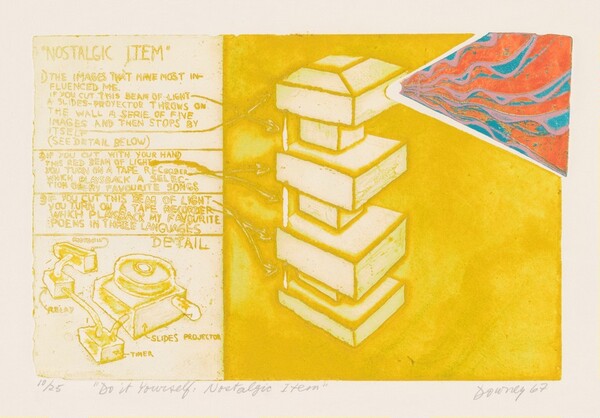 "NOSTALGIC ITEM"
1) THE IMAGES THAT HAVE MOST IN-
FLUENCED ME.
IF YOU CUT THIS BEAM OF LIGHT
A SLIDES-PROJECTOR THROWS ON
THE WALL A SERIE OF FIVE
IMAGES AND THEN STOPS BY
ITSELF
(SEE DETAIL BELOW)
2) IF YOU CUT WITH YOUR HAND
THIS RED BEAM OF LIGHT
YOU TURN ON A TAPE RECORDER
WHICH PLAYBACK A SELEC-
TION OF MY FAVOURITE SONGS
3) IF YOU CUT THIS BEAM OF LIGHT
YOU TURN ON A TAPE RECORDER
WHICH PLAYBACK MY FAVOURITE
POEMS IN THREE LANGUAGES
DETAIL
RELAY
SLIDES PROJECTOR
TIMER
10/25 "Do it Yourself, Nostalgic Item" Downey 67